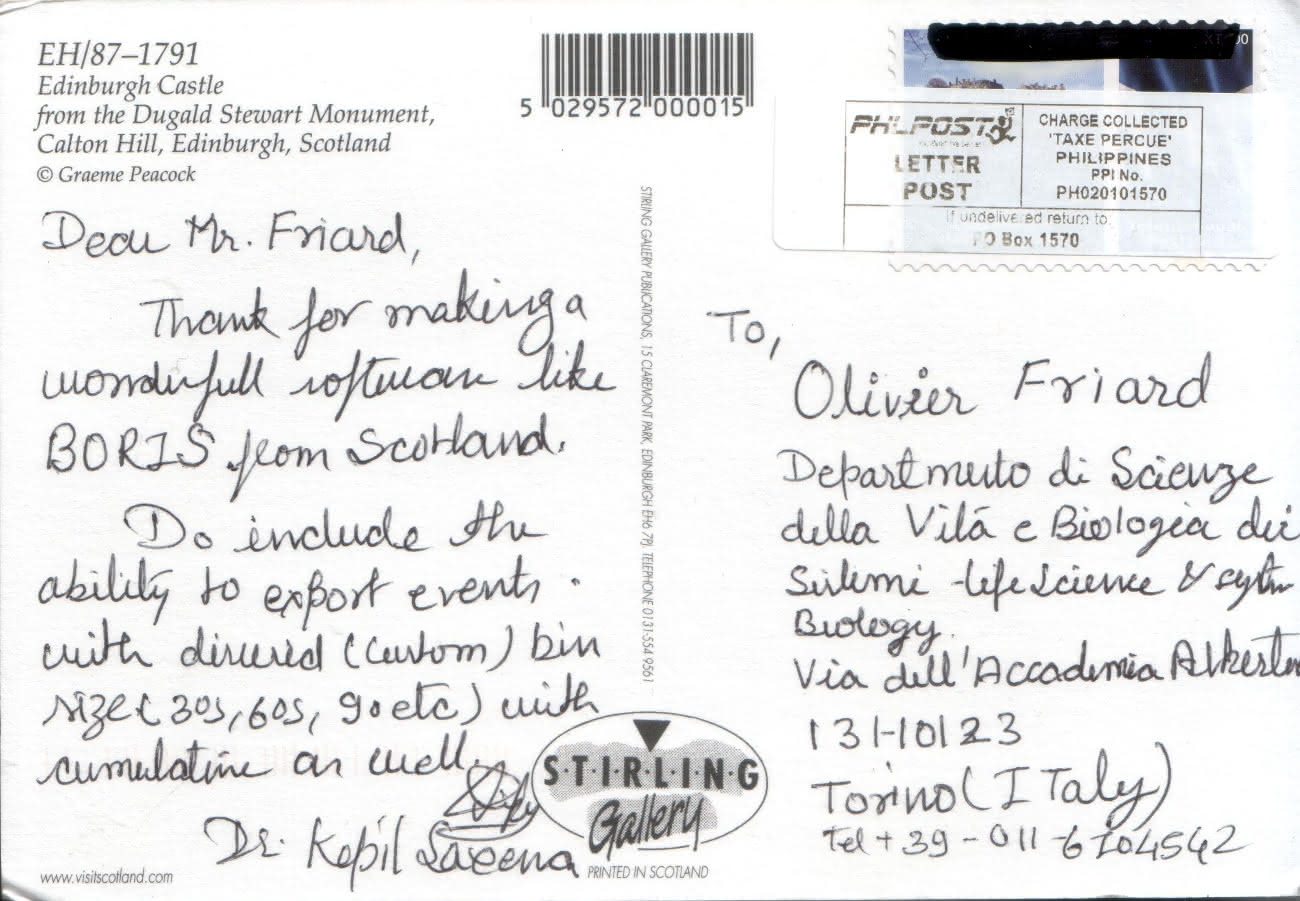 EH/87–1791
Edinburgh Castle
from the Dugald Stewart Monument,
Calton Hill, Edinburgh, Scotland
© Graeme Peacock
5 029572 000015
PHLPOST
LETTER
POST
CHARGE COLLECTED
'TAXE PERCUE'
PHILIPPINES
PPI No.
PH020101570
If undelivered return to
PO Box 1570
Dear Mr. Friard,
Thank for making a
wonderfull software like
BORIS from Scotland.
Do include the
ability to export events
with (custom) bin
size (30s, 60s, 90 etc) with
cumulative as well.
Dr. Kapil Saxena
www.visitscotland.com
STIRLING GALLERY PUBLICATIONS, 15 CLAREMONT PARK, EDINBURGH EH6 7PJ, TELEPHONE 0131-554 9561
S·T·I·R·L·I·N·G
Gallery
PRINTED IN SCOTLAND
To,
Olivier Friard
di Scienze
della Vitá e Biologia dei
Sistemi - life Science &
Biology.
Via dell'Accademia
131-10123
Torino (ITaly)
Tel + 39 - 011 - 6704542